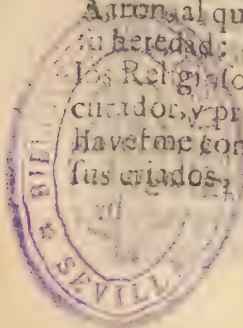 Aaron, al qu
su heredad:
los Religio
curador, y pr
Haverme con
sus criados,
BIBL
SEVILL